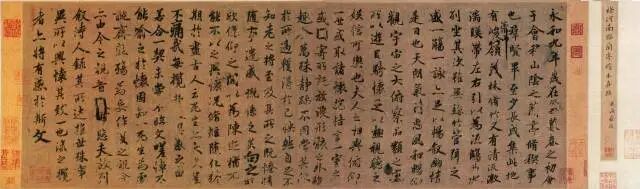 褚河南臨蘭亭絹本真跡
永和九年歲在癸丑暮春之初會
于會稽山陰之蘭亭脩稧事
也群賢畢至少長咸集此地
有峻領茂林脩竹又有清流激
湍映帶左右引以為流觴曲水
列坐其次雖無絲竹管弦之
盛一觴一詠亦足以暢敘幽情
是日也天朗氣清惠風和暢仰
觀宇宙之大俯察品類之盛
所以遊目騁懷足以極視聽之
娛信可樂也夫人之相與俯仰
一世或取諸懷抱悟言一室之內
或因寄所託放浪形骸之外雖
趣舍萬殊靜躁不同當其欣
於所遇暫得於己怏然自足不
知老之將至及其所之既惓情
隨事遷感慨係之矣向之所
欣俛仰之間以為陳迹猶不
能不以之興懷況脩短隨化終
期於盡古人云死生亦大矣豈
不痛哉每攬昔人興感之由
若合一契未嘗不臨文嗟悼不
能喻之於懷固知一死生為虛
誕齊彭殤為妄作後之視今
亦由今之視昔悲夫故列
敘時人錄其所述雖世殊事
異所以興懷其致一也後之攬
者亦將有感於斯文